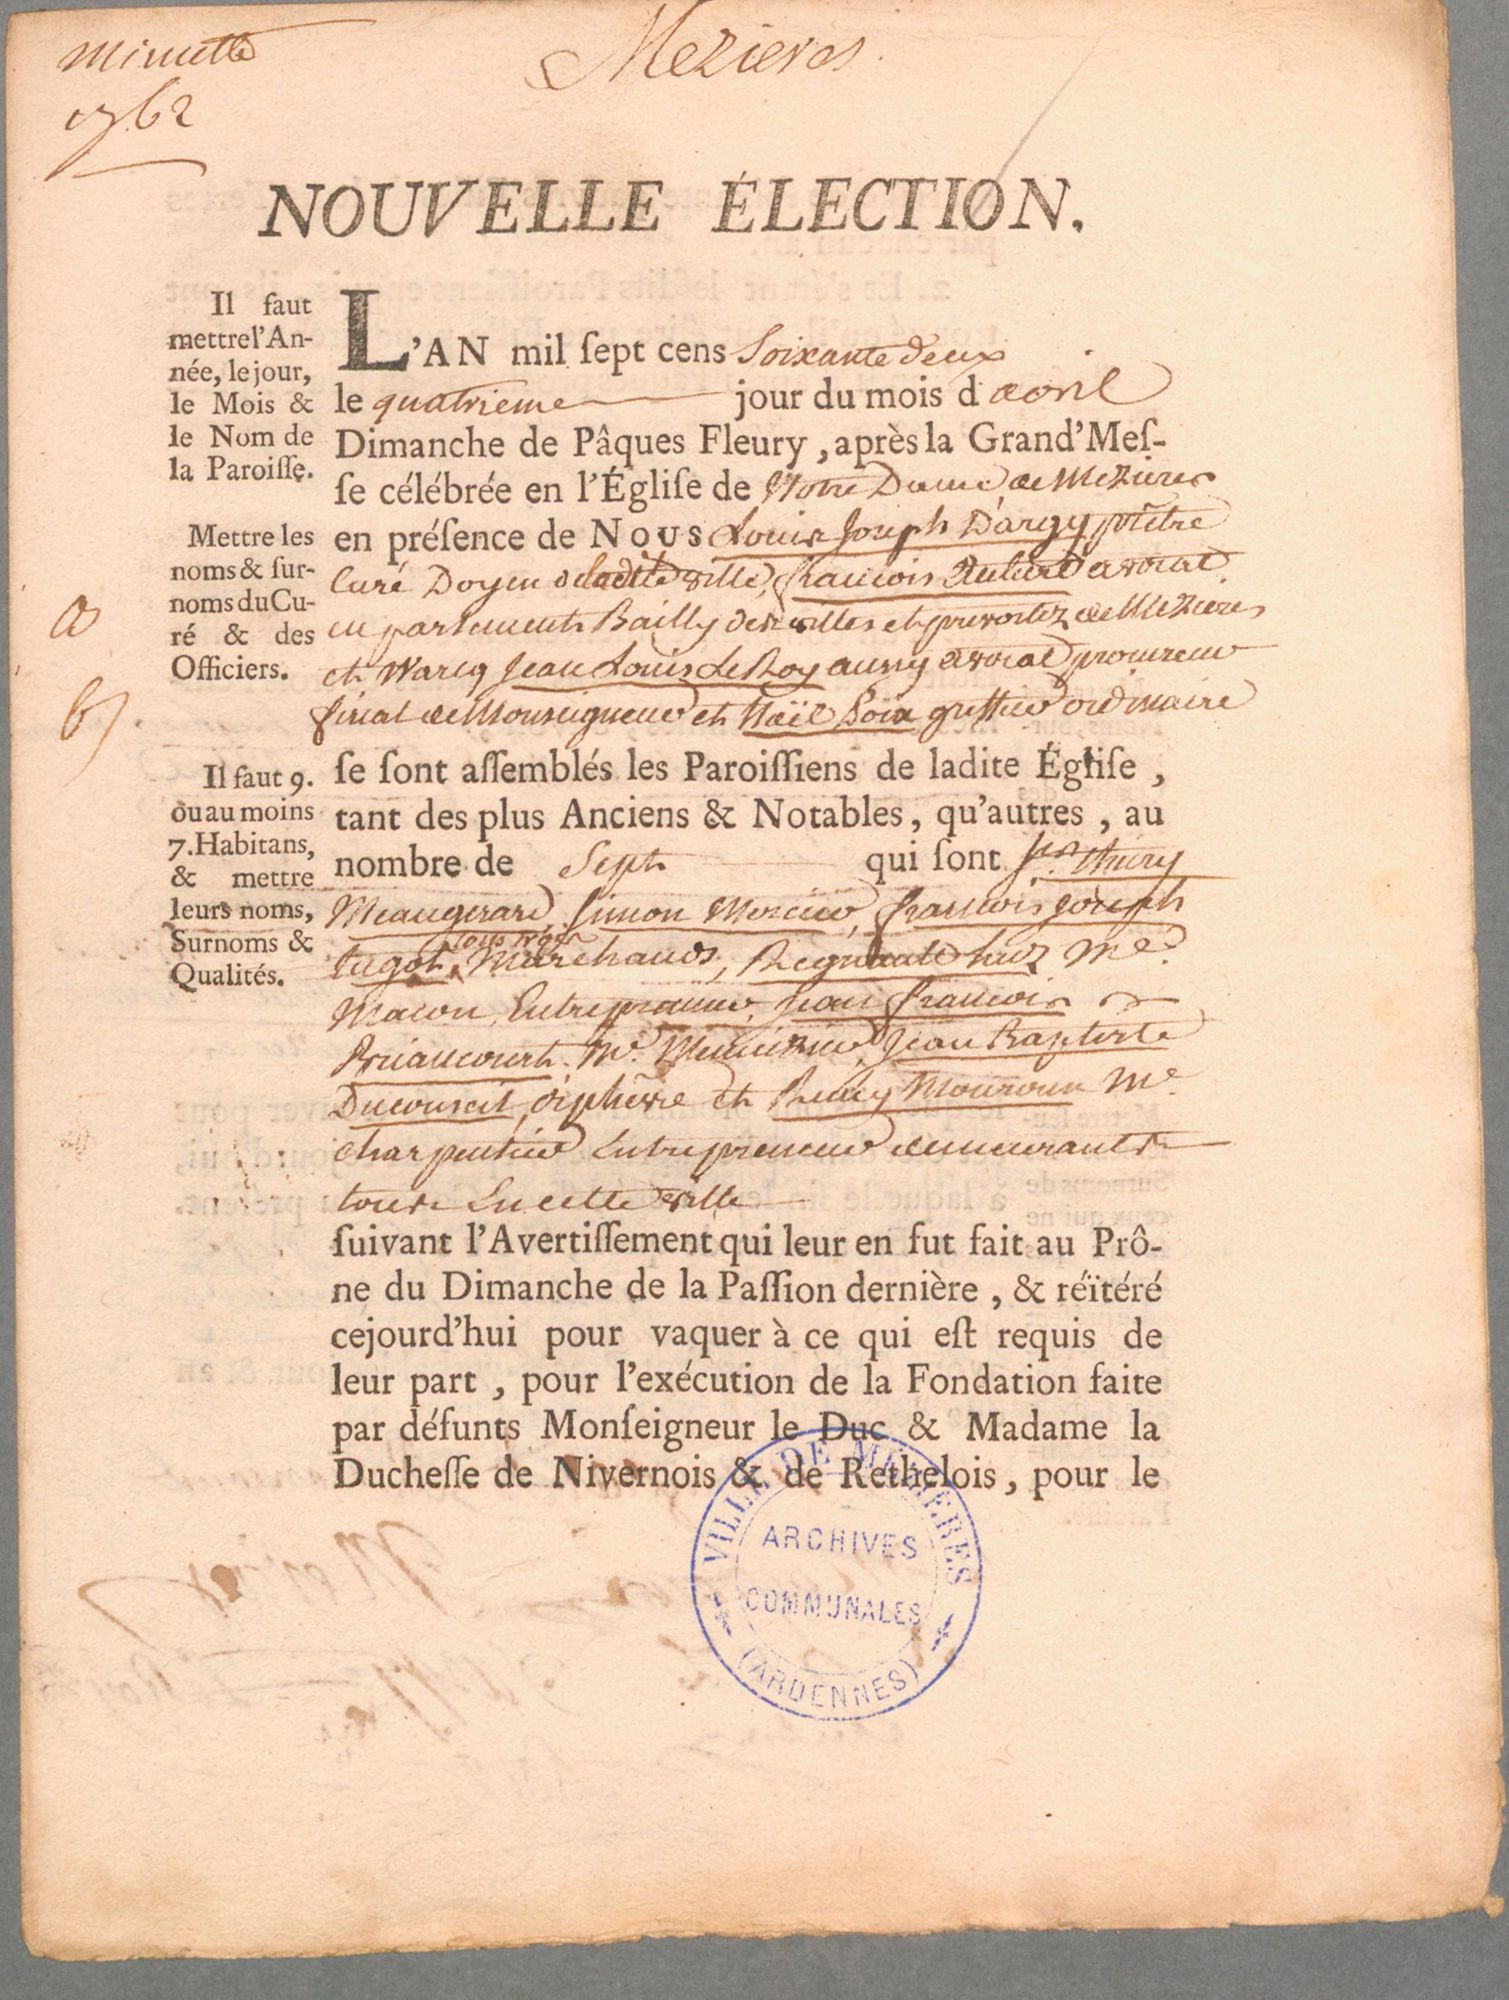 Minutte
1762
Mezieres.
NOUVELLE ÉLECTION.
Il faut
mettre l'An-
née, le jour,
le Mois &
le Nom de
la Paroiſſe.
L'AN mil ſept cens Soixante deux
le quatrieme jour du mois d avril
Dimanche de Pâques Fleury, après la Grand'Meſ-
ſe célébrée en l'Égliſe de Notre Dame de Mezieres
Mettre les
noms & ſur-
noms du Cu-
ré & des
Officiers.
en préſence de NOUS Louis Joseph D'argy prêtre
Curé Doyen de ladite ville, francois avocat
en parlement Bailly des villes et prevostez de Mezieres
et Warcq Jean Louis Le Roy aussy avocat procureur
fiscal de Monseigneur et Noël greffier ordinaire
a
b)
Il faut 9.
ou au moins
7. Habitans,
& mettre
leurs noms,
Surnoms &
Qualités.
ſe ſont aſſemblés les Paroiſſiens de ladite Égliſe,
tant des plus Anciens & Notables, qu'autres, au
nombre de Sept qui ſont Srs. thiery
Meaugerard, Simon Mercier, francois joseph
tugot, Marchands, Regnault M.
Macon Entrepreneur, Jean francois
M. Menuisier, Jean Baptiste
Ducouseil, orphevre et Remy Mouroux Me.
charpentier Entrepreneur demeurants
tous en cette ville
ſuivant l'Avertiſſement qui leur en fut fait au Prô-
ne du Dimanche de la Paſſion dernière, & réïtéré
cejourd'hui pour vaquer à ce qui eſt requis de
leur part, pour l'exécution de la Fondation faite
par défunts Monſeigneur le Duc & Madame la
Ducheſſe de Nivernois & de Rethelois, pour le
VILLE DE MÉZIÈRES
ARCHIVES
COMMUNALES
(ARDENNES)